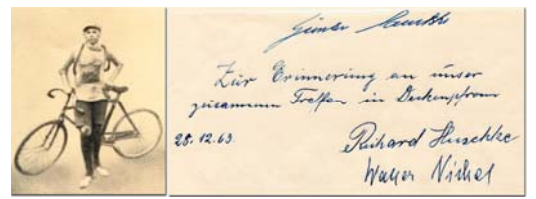 Günter Huschke
Zur Erinnerung an unser
zusammen Treffen in Deckenpfronn
28.12.63.
Richard Huschke
Walter Nickel